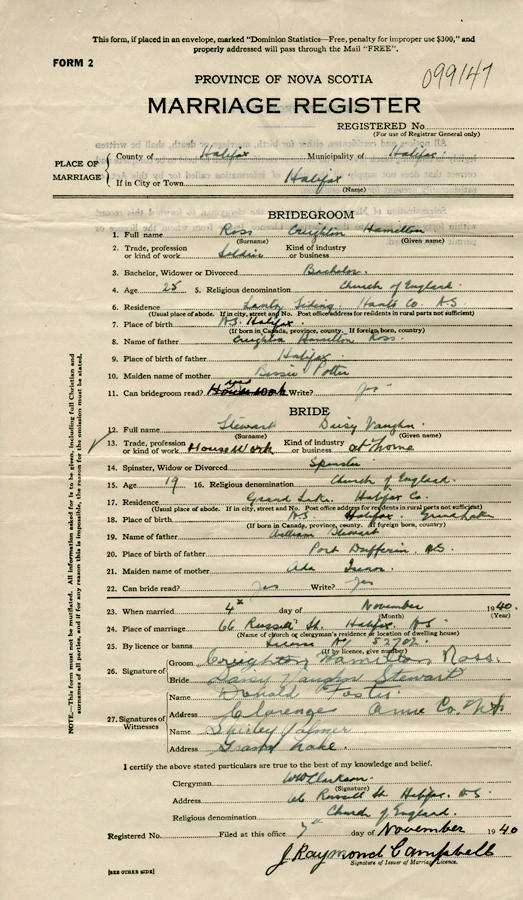 This form, if placed in an envelope, marked "Dominion Statistics—Free, penalty for improper use $300," and
properly addressed will pass through the Mail "FREE".
FORM 2
099147
PROVINCE OF NOVA SCOTIA
MARRIAGE REGISTER
REGISTERED No.
(For use of Registrar General only)
PLACE OF MARRIAGE
County of Halifax Municipality of Halifax
If in City or Town Halifax
(Name)
BRIDEGROOM
1. Full name Ross Creighton Hamilton
(Surname) (Given name)
2. Trade, profession or kind of work Soldier Kind of industry or business
3. Bachelor, Widower or Divorced Bachelor.
4. Age 25 5. Religious denomination Church of England
6. Residence Lantz Siding Hants Co. N.S.
(Usual place of abode. If in city, street and No. Post office address for residents in rural parts not sufficient)
7. Place of birth N.S. Halifax.
(If born in Canada, province, county. If foreign born, country)
8. Name of father Creighton Hamilton Ross.
9. Place of birth of father Halifax.
10. Maiden name of mother Bessie Potter
11. Can bridegroom read? Write? Yes
BRIDE
12. Full name Stewart Daisy Vaughn
(Surname) (Given name)
13. Trade, profession or kind of work Housework Kind of industry or business at home
14. Spinster, Widow or Divorced Spinster
15. Age 19 16. Religious denomination Church of England.
17. Residence Grand Lake. Halifax Co.
(Usual place of abode. If in city, street and No. Post office address for residents in rural parts not sufficient)
18. Place of birth N.S. Halifax. Grand Lake
(If born in Canada, province, county. If foreign born, country)
19. Name of father William Stewart
20. Place of birth of father Port Dufferin N.S.
21. Maiden name of mother Ada
22. Can bride read? Yes Write? Yes
23. When married 4th day of November 1940.
(Month) (Year)
24. Place of marriage 66 Russell St. Halifax. N.S.
(Name of church or clergyman's residence or location of dwelling house)
25. By licence or banns License No 52702
(If by licence, give number)
26. Signature of
Groom Creighton Hamilton Ross.
Bride Daisy Vaughn Stewart
27. Signatures of Witnesses
Name Donald
Address Clarence Anna Co. N.S.
Name Shirley Palmer
Address Grand Lake.
I certify the above stated particulars are true to the best of my knowledge and belief.
Clergyman WW Clarkson.
(Signature)
Address 66 Russell St. Halifax. N.S.
Religious denomination Church of England.
Registered No. Filed at this office 7th day of November 1940
J Raymond Campbell
Signature of Issuer of Marriage Licence.
[SEE OTHER SIDE]
NOTE.—This form must not be mutilated. All information asked for is to be given, including full Christian and
surnames of all parties, and if for any reason this is impossible, the reason for the omission must be stated.